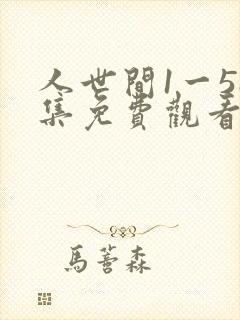 人世間1一5
集免費觀看
馬蓍森